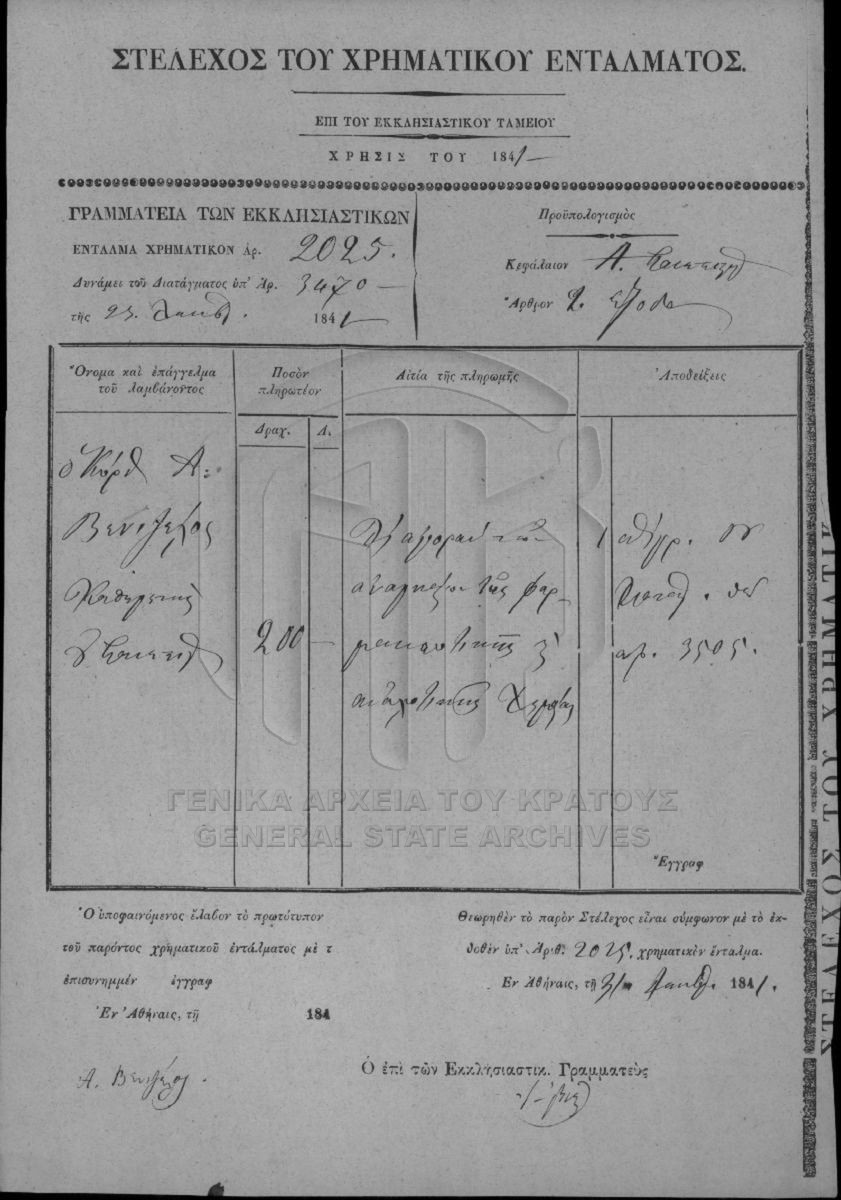 ΣΤΕΛΕΧΟΣ ΤΟΥ ΧΡΗΜΑΤΙΚΟΥ ΕΝΤΑΛΜΑΤΟΣ.
ΕΠΙ ΤΟΥ ΕΚΚΛΗΣΙΑΣΤΙΚΟΥ ΤΑΜΕΙΟΥ
ΧΡΗΣΙΣ ΤΟΥ 1841
ΓΡΑΜΜΑΤΕΙΑ ΤΩΝ ΕΚΚΛΗΣΙΑΣΤΙΚΩΝ
ΕΝΤΑΛΜΑ ΧΡΗΜΑΤΙΚΟΝ Αρ. 2025.
Δυνάμει τοῦ Διατάγματος ὑπ' Ἀρ. 3470
τῆς 25. 1841
Προϋπολογισμὸς
Κεφάλαιον Α.
Ἄρθρον 2. Ἔξοδα
Ὄνομα καὶ ἐπάγγελμα
τοῦ λαμβάνοντος
Ποσὸν
πληρωτέον
Αἰτία τῆς πληρωμῆς
Ἀποδείξεις
Δραχ.
Λ.
ὁ Κύριος Α:
Βενιζέλος
Καθηγητὴς
200
Δι' ἀγορὰν τῶν
ἀναγκαίων τῆς φαρ-
μακευτικῆς
1
ἀρ. 3505.
Ἔγγραφ
ΓΕΝΙΚΑ ΑΡΧΕΙΑ ΤΟΥ ΚΡΑΤΟΥΣ
GENERAL STATE ARCHIVES
Ὁ ὑποφαινόμενος ἔλαβον τὸ πρωτότυπον
τοῦ παρόντος χρηματικοῦ ἐντάλματος μὲ τ
ἐπισυνημμέν ἐγγραφ
Ἐν Ἀθήναις, τῇ 184
Α. Βενιζέλος.
Θεωρηθὲν τὸ παρὸν Στέλεχος εἶναι σύμφωνον μὲ τὸ ἐκ-
δοθὲν ὑπ' Ἀριθ. 2025. χρηματικὸν ἔνταλμα.
Ἐν Ἀθήναις, τῇ 31 1841.
Ὁ ἐπὶ τῶν Ἐκκλησιαστικ. Γραμματεὺς
ΣΤΕΛΕΧΟΣ ΤΟΥ ΧΡΗΜΑΤΙΚ